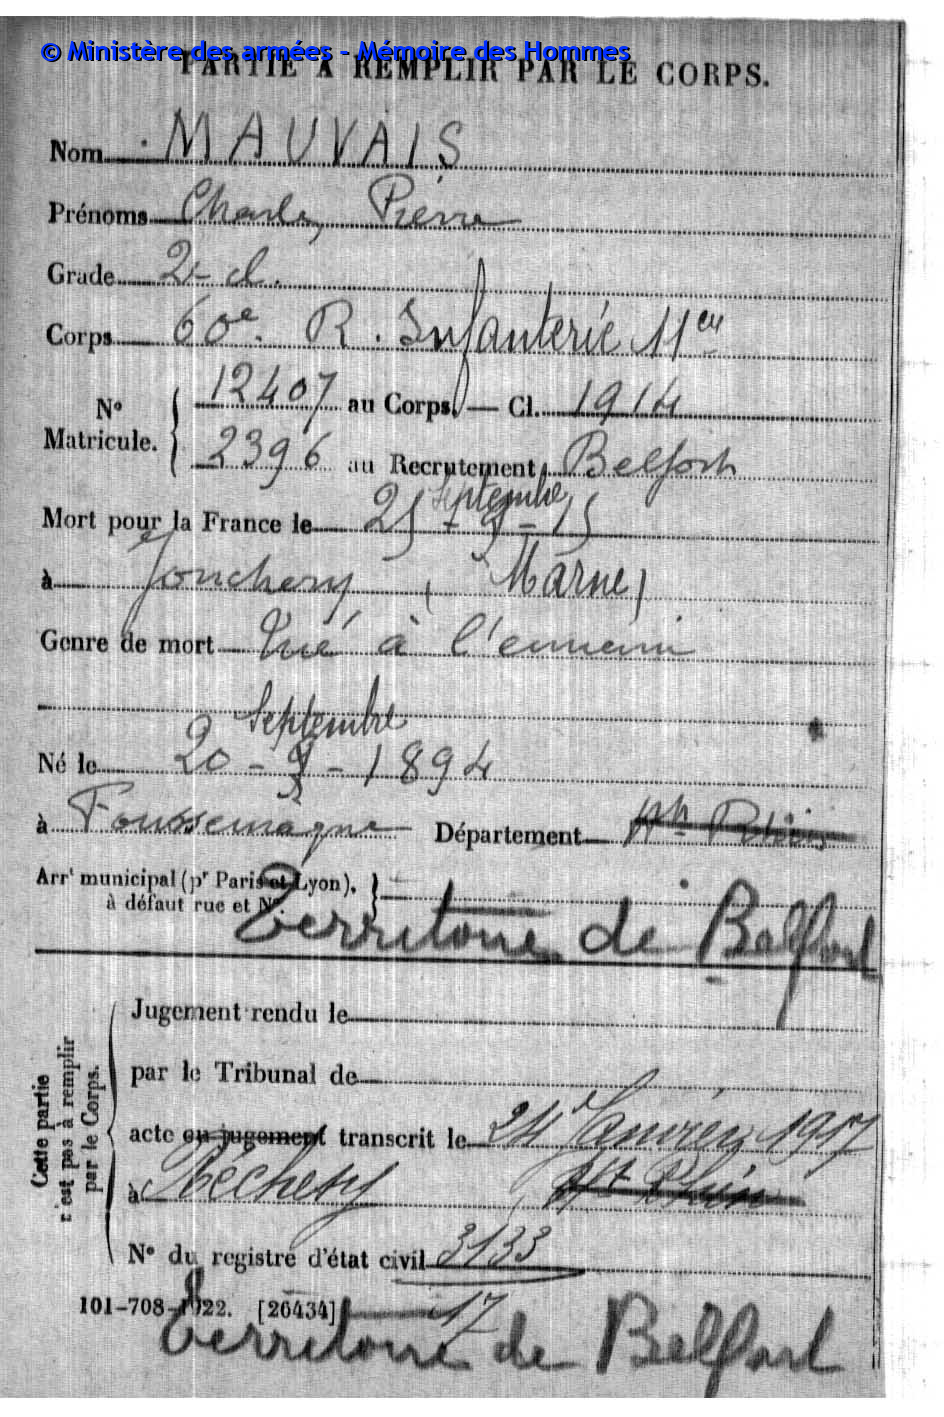 © Ministère des armées - Mémoire des Hommes
PARTIE A REMPLIR PAR LE CORPS.
Nom MAUVAIS
Prénoms Charles, Pierre
Grade 2e cl.
Corps 60e. R. Infanterie 11eme
No Matricule. 12407 au Corps. — Cl. 1914
2396 au Recrutement Belfort
Septembre
Mort pour la France le 25 - 9 - 15
à Jonchery (Marne)
Genre de mort Tué à l'ennemi
Septembre
Né le 20 - 9 - 1894
à Foussemagne Département Ht Rhin
Arrt municipal (pr Paris et Lyon),
à défaut rue et No.
Territoire de Belfort
Cette partie n'est pas à remplir par le Corps.
Jugement rendu le
par le Tribunal de
acte ou jugement transcrit le 24 Janvier 1917
à Réchésy Ht Rhin
No du registre d'état civil 3133
101-708-1922. [26434] 17
Territoire de Belfort